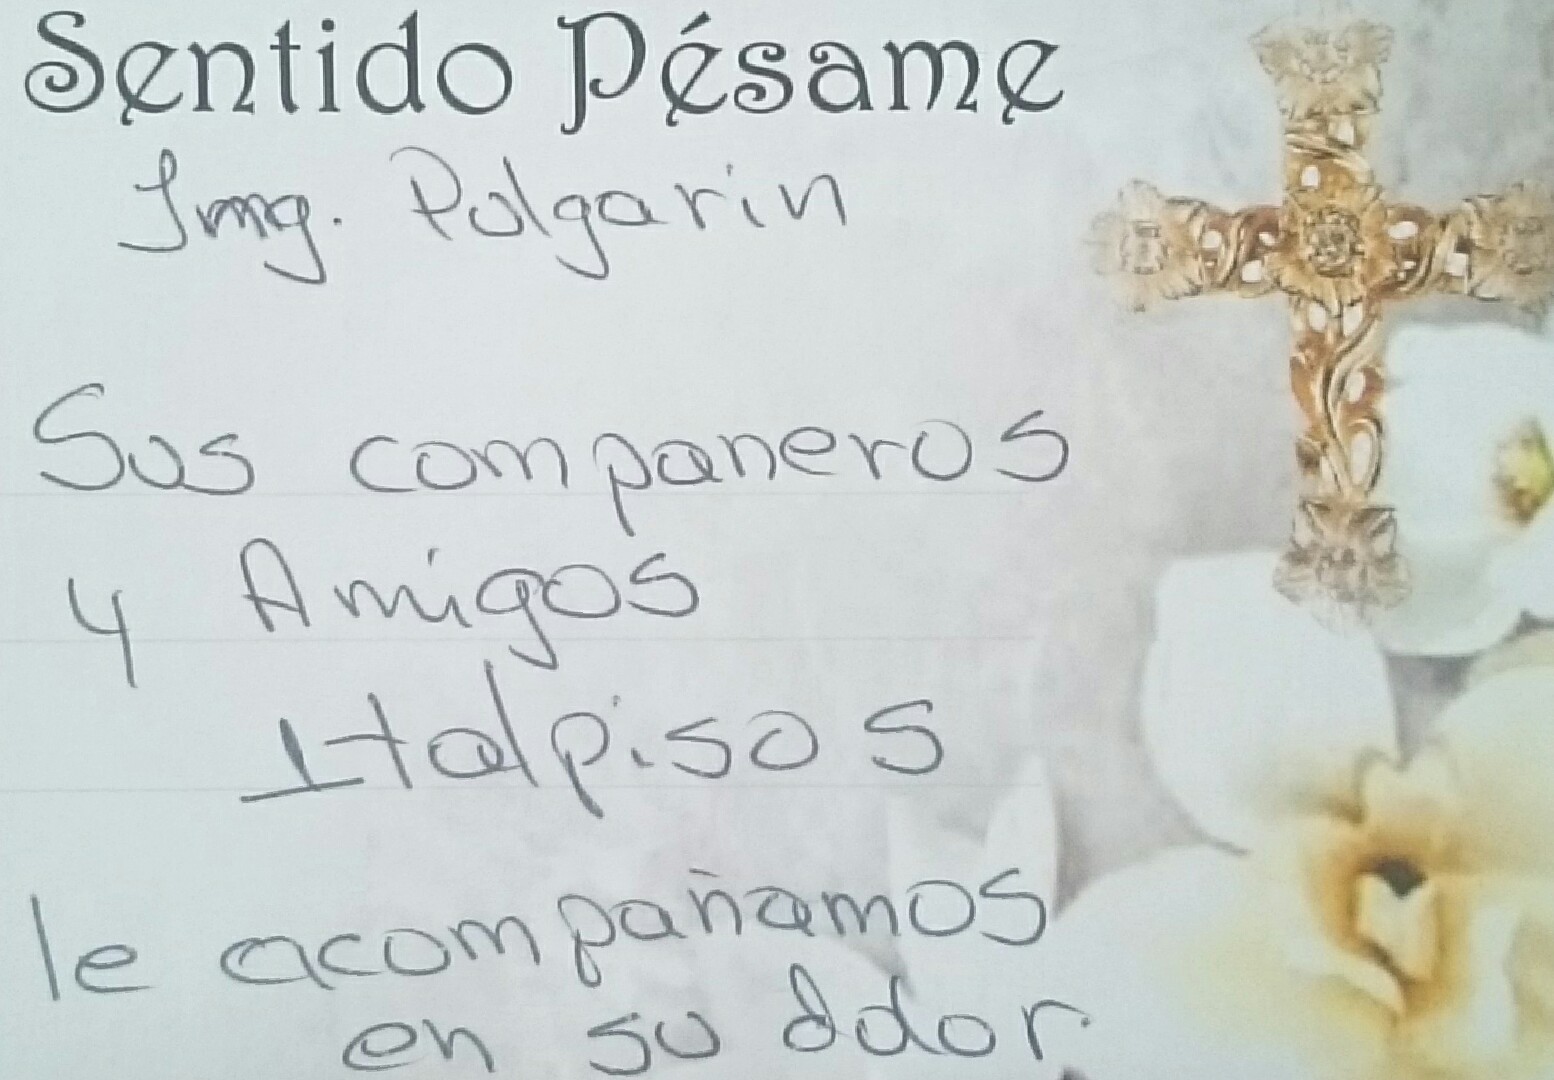 Sentido Pésame
Img. Pulgarin
Sus companeros
y Amigos
Italpisos
le acompañamos
en su ddor